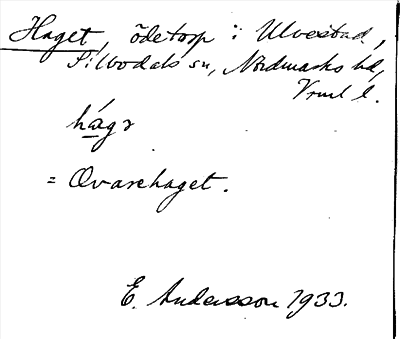 Haget, ödetorp i Ulvestad,
Silbodals sn, Nordmarks hd,
Vrml l.
hágr
= Qvarnhaget.
E. Andersson 1933.